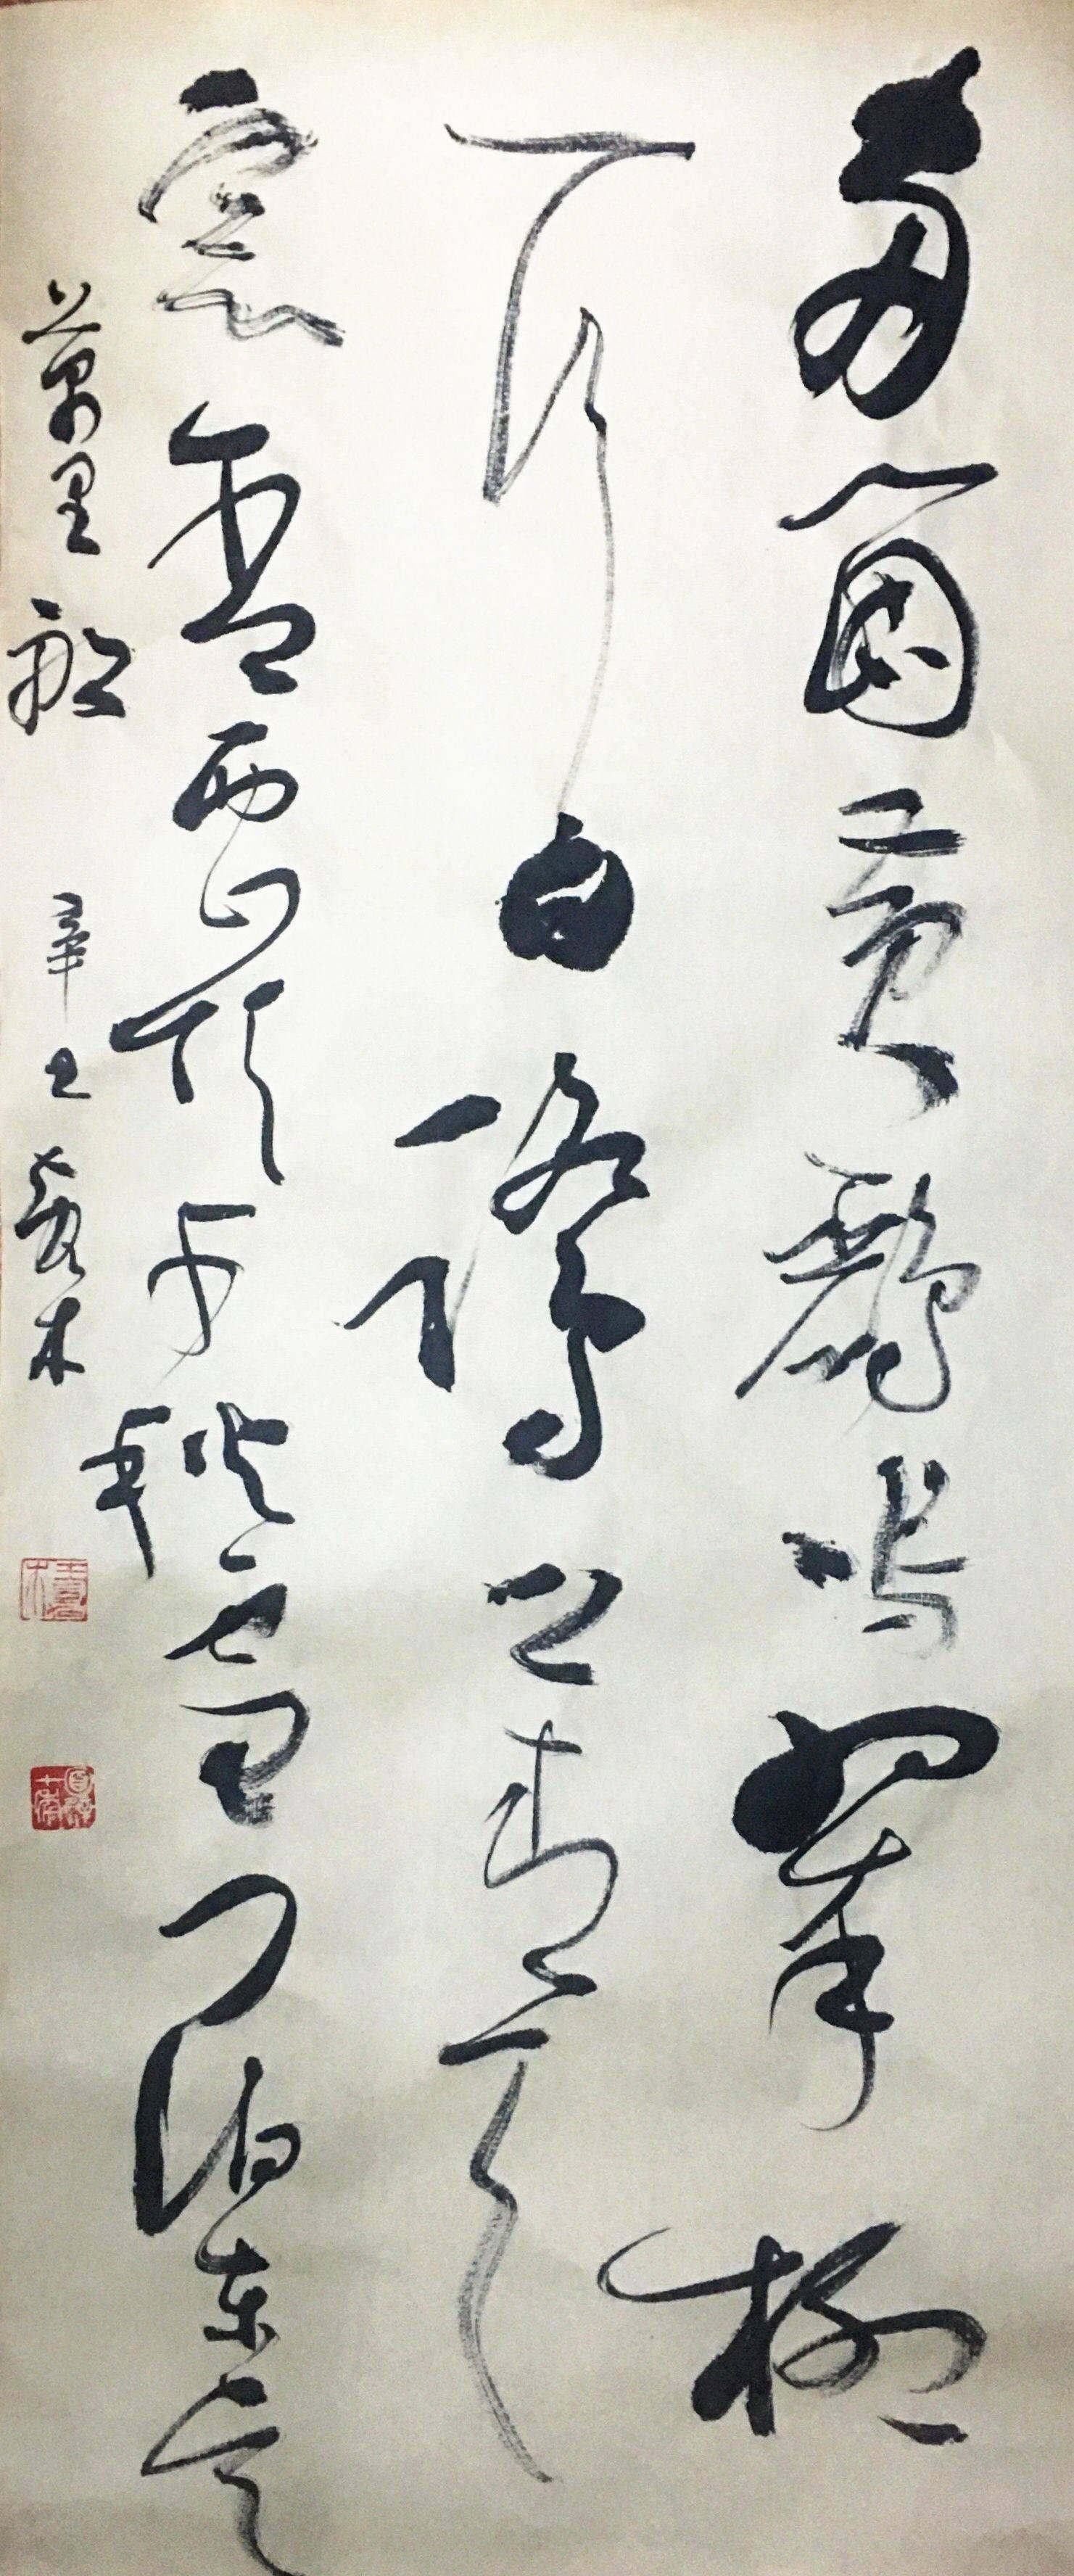 两个黄鹂鸣翠柳
一行白鹭上青天
窗含西岭千秋雪门泊东吴
萬里船 辛丑 木